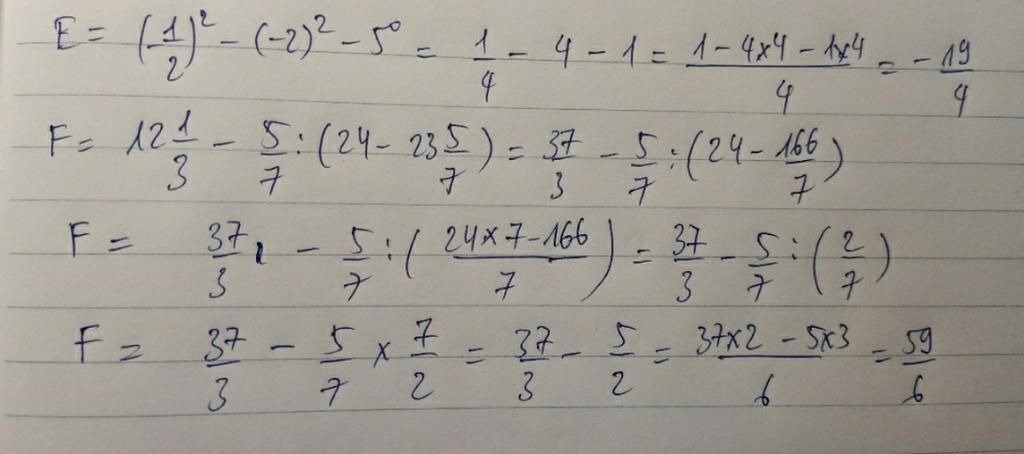 E = (1/2)² - (-2)² - 5⁰ = 1/4 - 4 - 1 = (1 - 4x4 - 1x4)/4 = -19/4
F = 12 1/3 - 5/7 : (24 - 23 5/7) = 37/3 - 5/7 : (24 - 166/7)
F = 37/3 - 5/7 : ((24x7 - 166)/7) = 37/3 - 5/7 : (2/7)
F = 37/3 - 5/7 x 7/2 = 37/3 - 5/2 = (37x2 - 5x3)/6 = 59/6